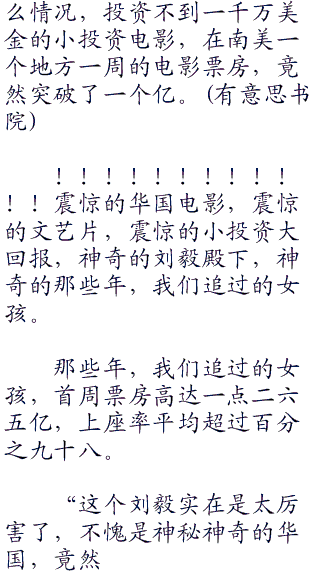 么情况，投资不到一千万美
金的小投资电影，在南美一
个地方一周的电影票房，竟
然突破了一个亿。(有意思书
院)
！！！！！！！！！！
！！震惊的华国电影，震惊
的文艺片，震惊的小投资大
回报，神奇的刘毅殿下，神
奇的那些年，我们追过的女
孩。
那些年，我们追过的女
孩，首周票房高达一点二六
五亿，上座率平均超过百分
之九十八。
“这个刘毅实在是太厉
害了，不愧是神秘神奇的华
国，竟然